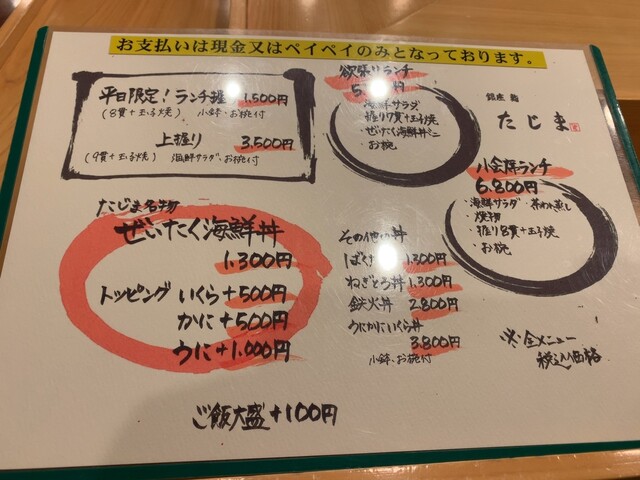 お支払いは現金又はペイペイのみとなっております。
平日限定！ランチ握り 1.500円
(8貫+玉子焼) 小鉢・お椀付
上握り 3.500円
(9貫+玉子焼) 海鮮サラダ、お椀付
欲張りランチ
海鮮サラダ
・握り7貫+玉子焼
・ぜいたく海鮮丼ミニ
・お椀
銀座 鮨
たじま
小会席ランチ
6.800円
・海鮮サラダ・茶わん蒸し
・焼物
・握り8貫+玉子焼
・お椀
たじま名物
ぜいたく海鮮丼
1.300円
トッピング いくら+500円
かに+500円
うに+1.000円
その他の丼
ばくだ 1.300円
ねぎとろ丼 1.300円
鉄火丼 2.800円
うにかにいくら丼
3.800円
小鉢、お椀付
※全メニュー
税込価格
ご飯大盛+100円